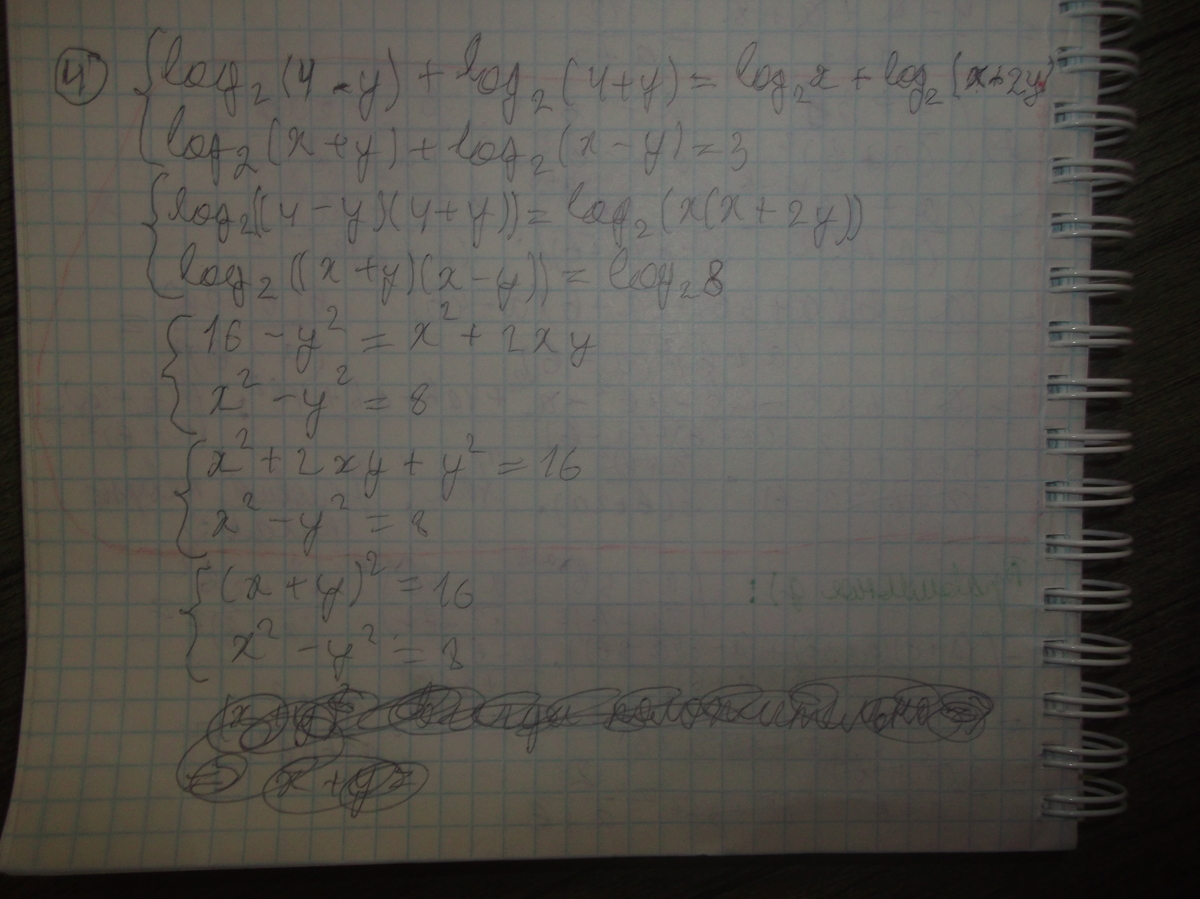 4) { log₂(4-y) + log₂(4+y) = log₂x + log₂(x+2y)
log₂(x+y) + log₂(x-y) = 3
{ log₂((4-y)(4+y)) = log₂(x(x+2y))
log₂((x+y)(x-y)) = log₂8
{ 16 - y² = x² + 2xy
x² - y² = 8
{ x² + 2xy + y² = 16
x² - y² = 8
{ (x+y)² = 16
x² - y² = 8